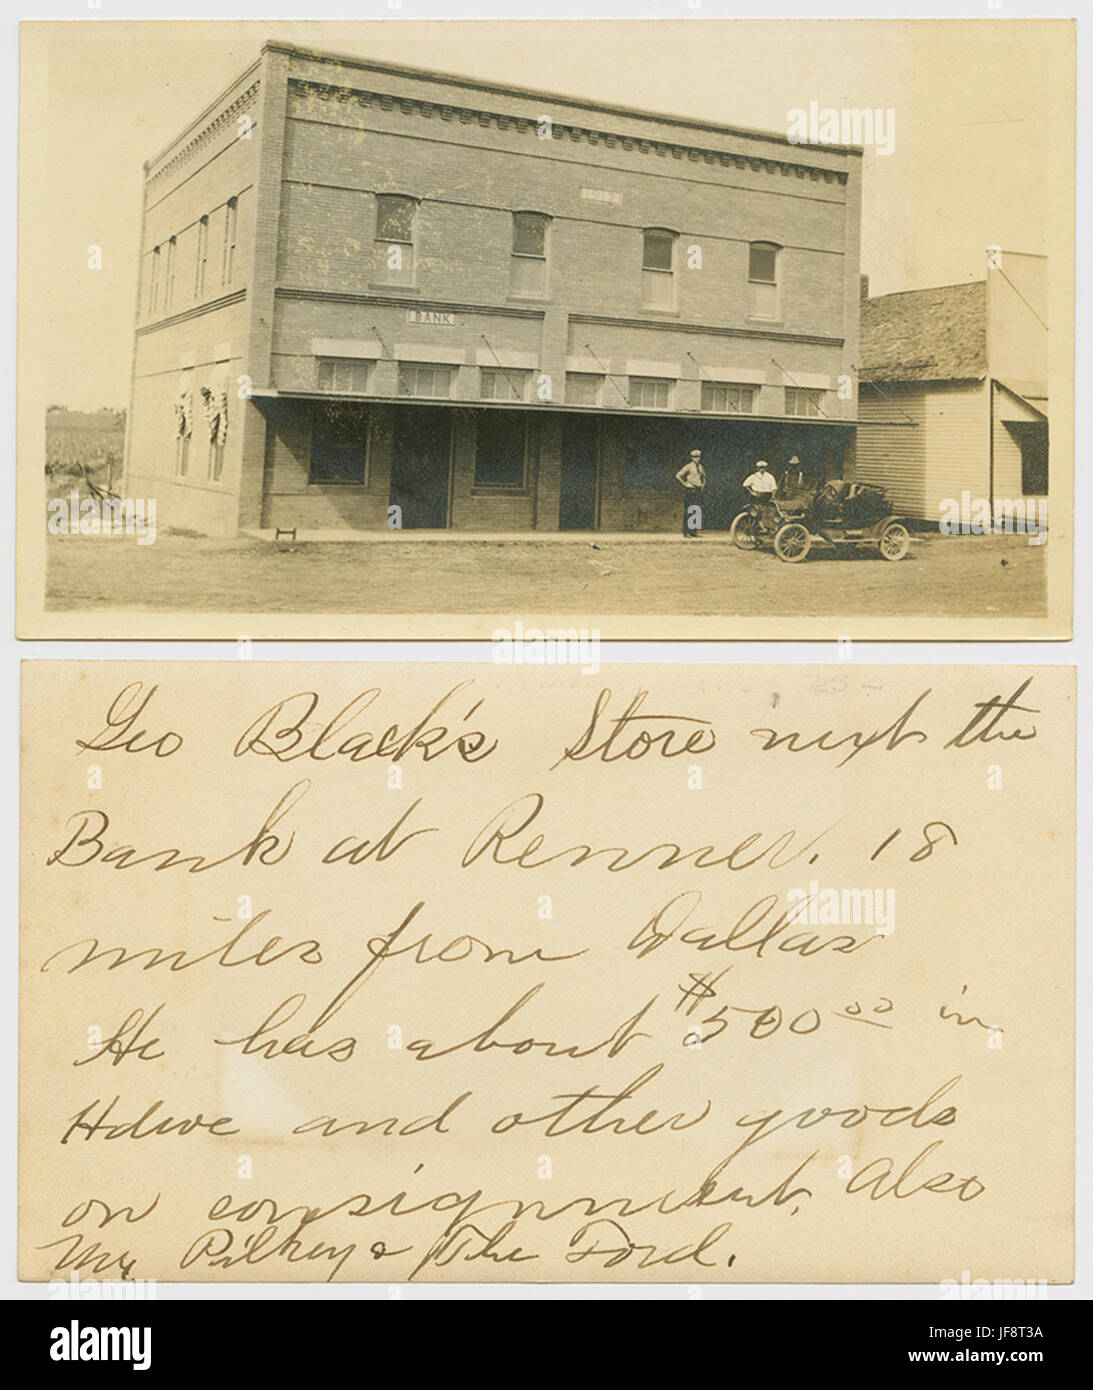 BANK
Geo Black's Store next the
Bank at Renner. 18
miles from Dallas
He has about $500.00 in
Hdwe and other goods
on consignment, Also
Mr. Pilkey & The Ford.
alamy
Image ID: JF8T3A
www.alamy.com